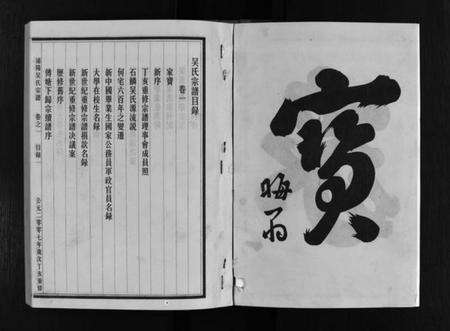 寶
晦翁
吴氏宗譜目録
卷一
家寶
新序
丁亥重修宗譜理事會成員照
石麟吴氏源流説
何宅六百年之變遷
新中國畢業生國家公務員軍政官員名録
大學在校生名録
新世紀重修宗譜捐款名録
新世紀重修宗譜决議案
歷修舊序
傅塘下歸宗續譜序
浦陽吴氏宗譜 卷之一 目録 一
公元二零零七年歲次丁亥重修